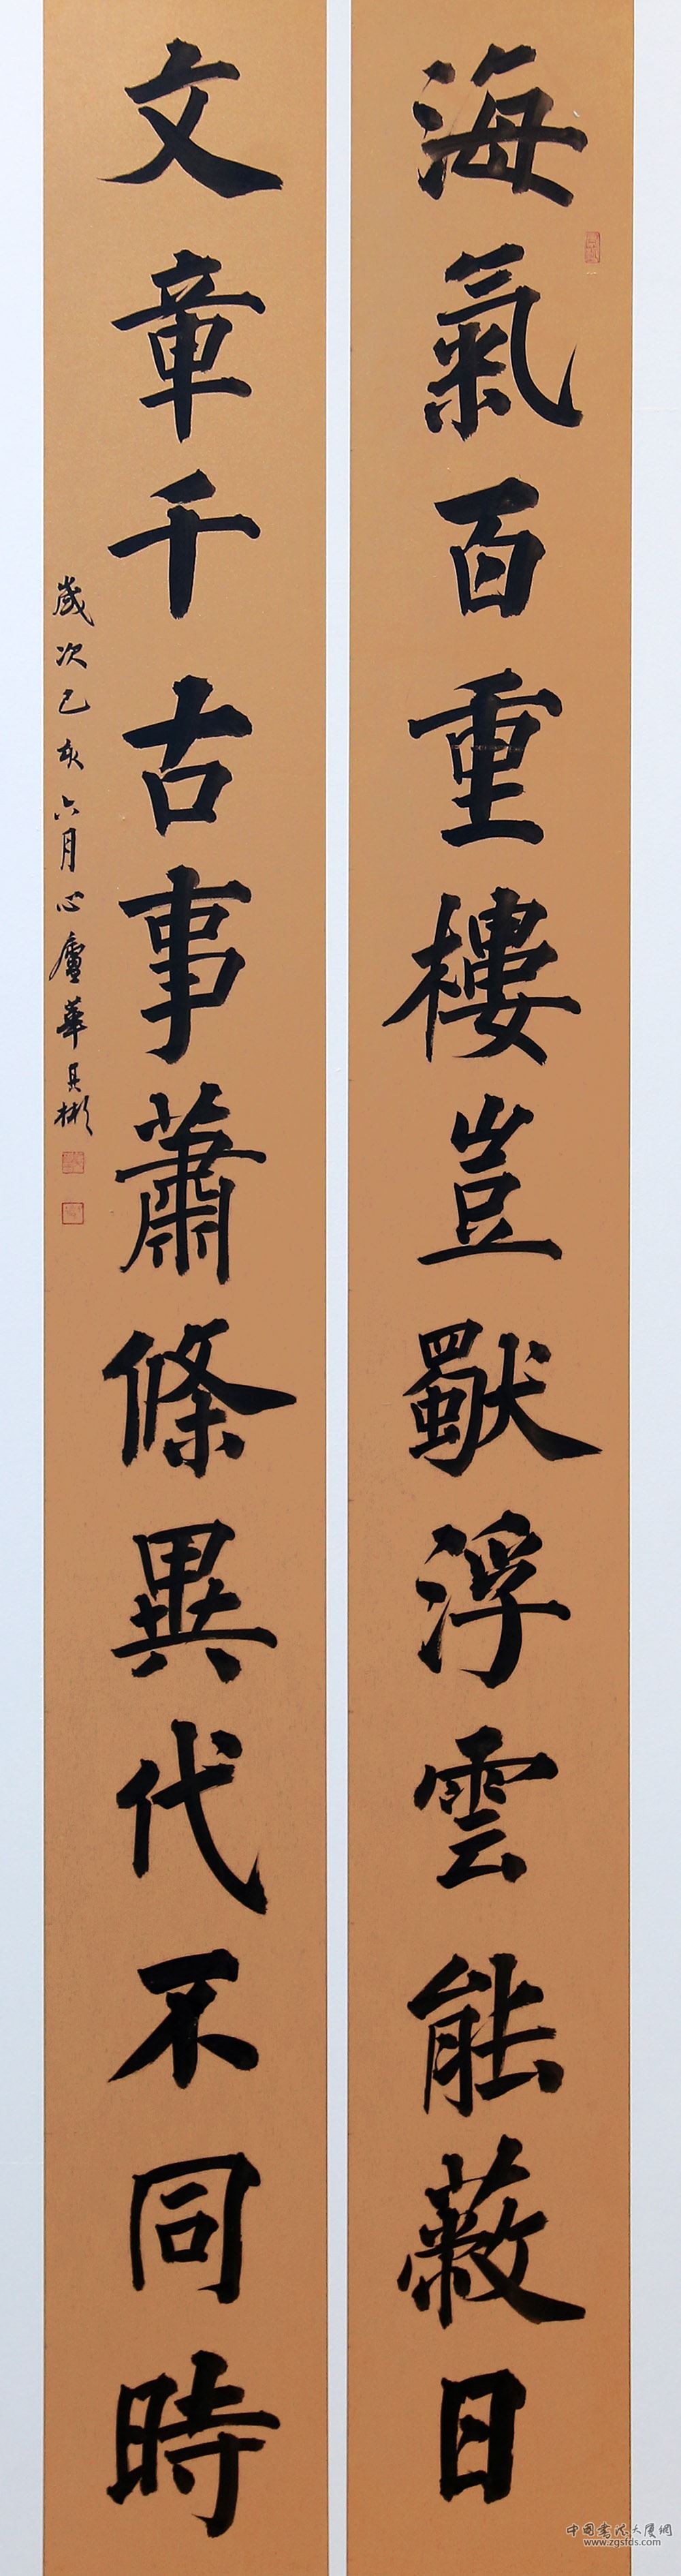 海氣百重樓豈獸浮雲能蔽日
文章千古事蕭條異代不同時
歲次己亥六月心廬華具彬
中国书法大厦網
www.zgsfds.com